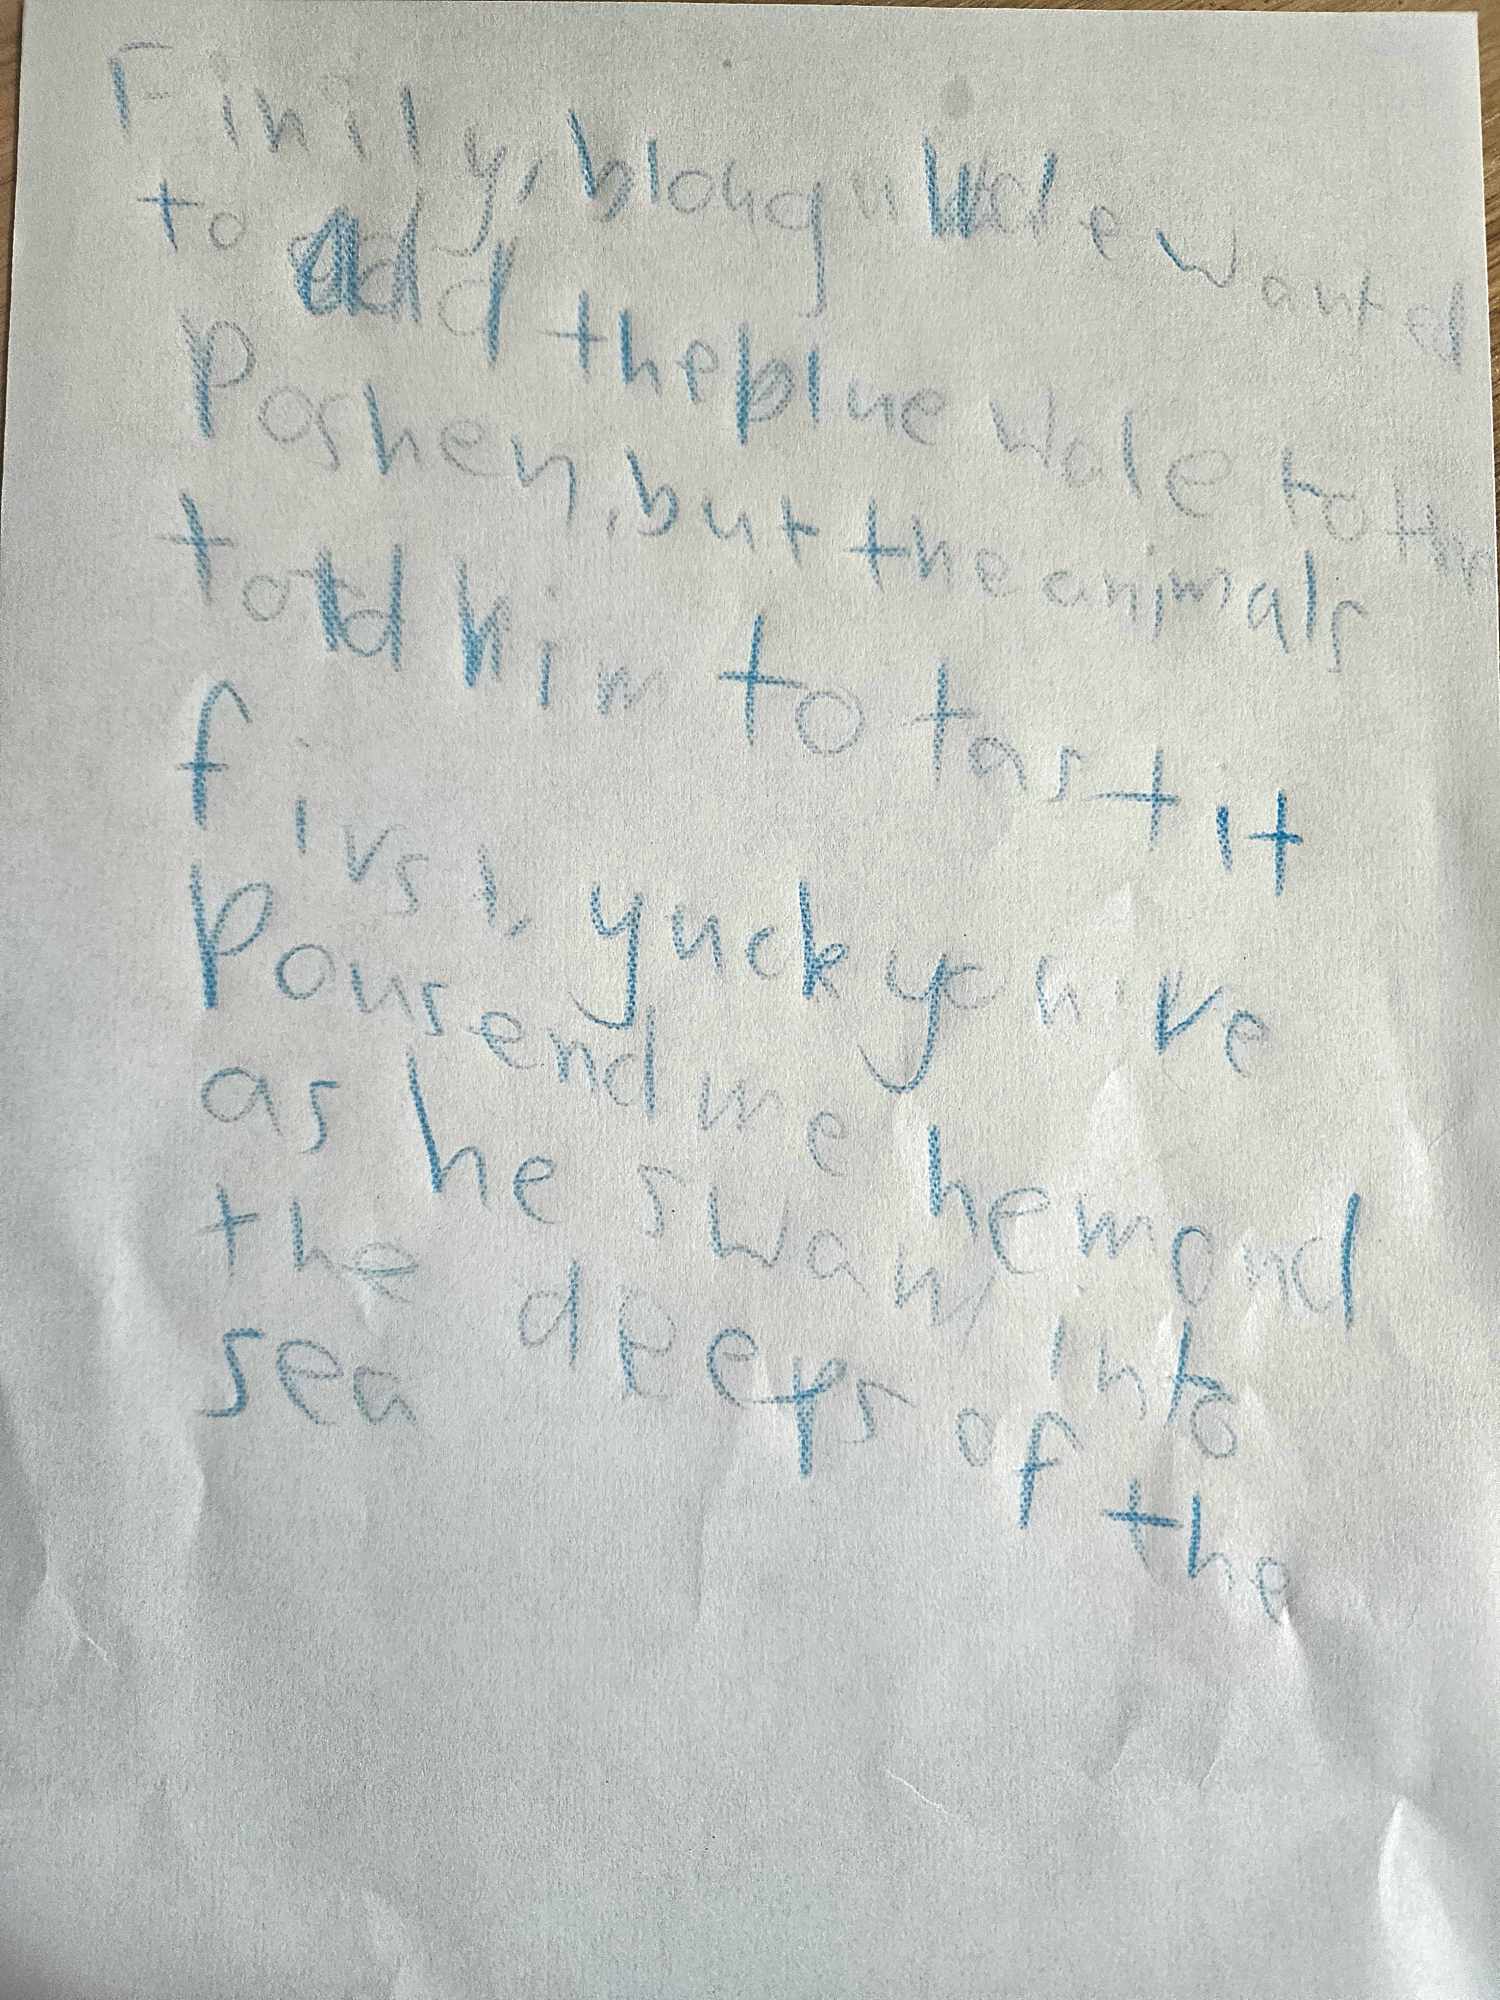 Finily, blong wale wanted
to add the blue wale to the
Poshen, but the animals
told him to tast it
first, yuck ye hive
Pousend me he mond
as he swam into
the deeps of the
sea